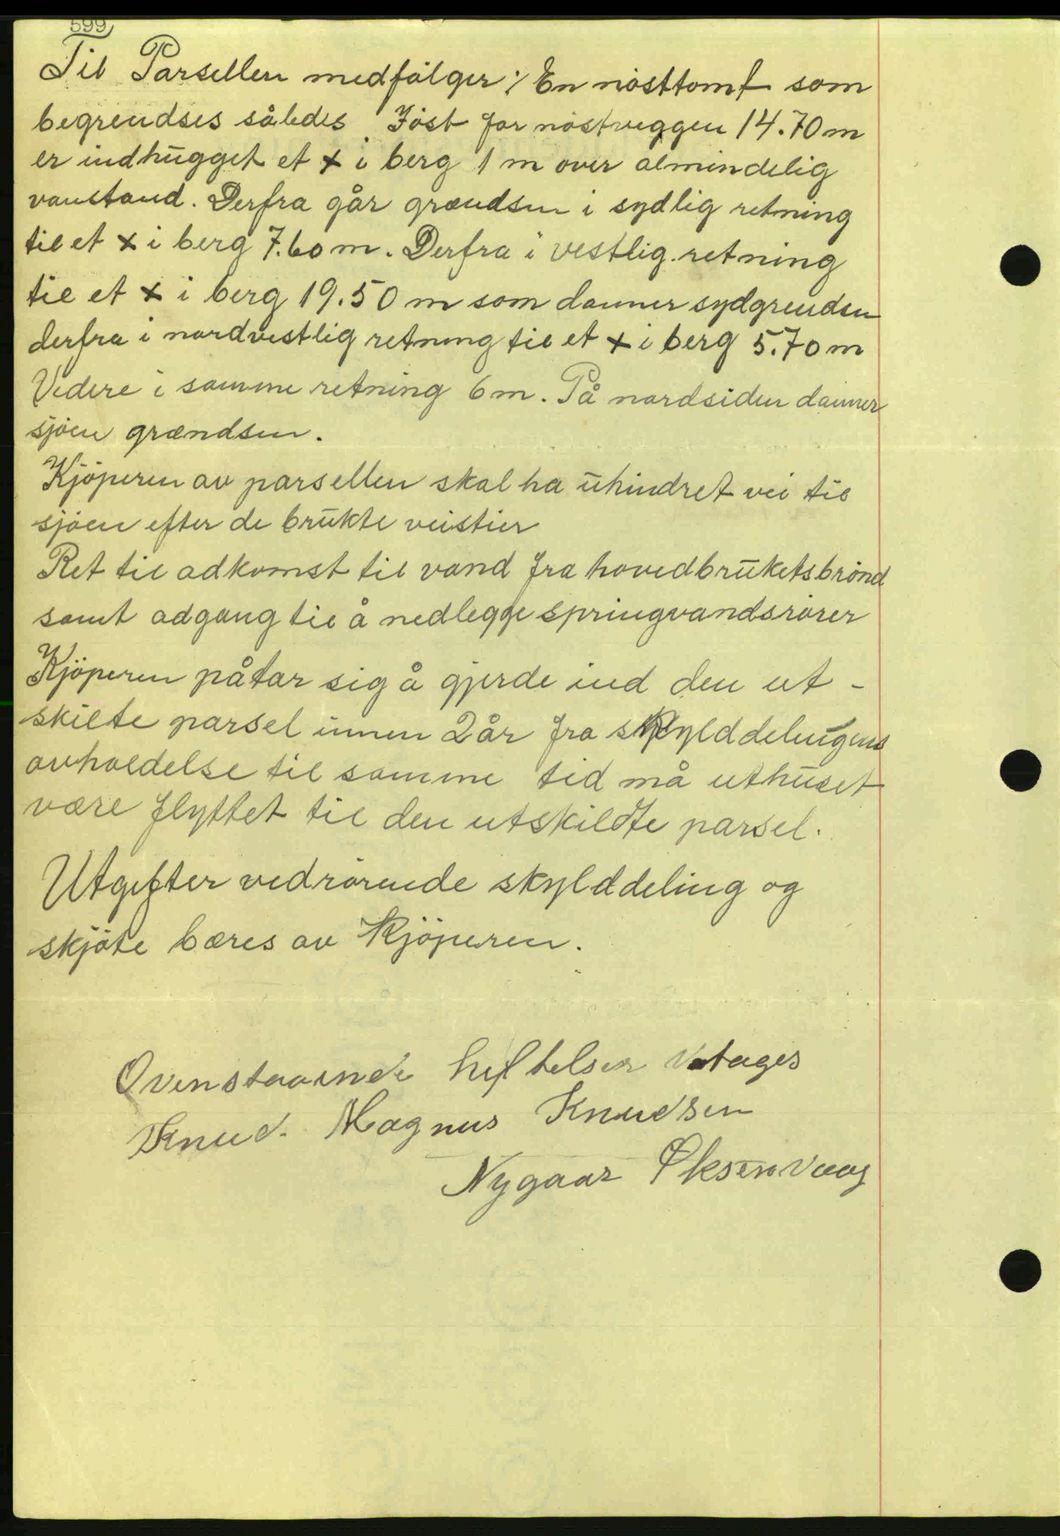 599
Til Parsellen medfølger :/ En nösttomt som
begrendses således. I öst for nöstveggen 14.70 m
er indhugget et x i berg 1 m over almindelig
vanstand. Derfra går grændsen i sydlig retning
til et x i berg 7.60 m. Derfra i vestlig retning
til et x i berg 19.50 m som danner sydgrendsen
derfra i nordvestlig retning til et x i berg 5.70 m
Videre i samme retning 6 m. På nordsiden danner
sjöen grændsen.
Kjöperen av parsellen skal ha uhindret vei til
sjöen efter de brukte veistier
Ret til adkomst til vand fra hovedbruketsbrönd
samt adgang til å nedlegge springvandsrörer
Kjöperen påtar sig å gjerde ind den ut -
skilte parsel innen 2 år fra skylddelingens
avholdelse til samme tid må uthuset
være flyttet til den utskildte parsel.
Utgifter vedrörende skylddeling og
skjöte bæres av Kjöperen.
Ovenstaaende heftelser vetages
Knud. Magnus Knudsen
Nygaar Øksenvaag